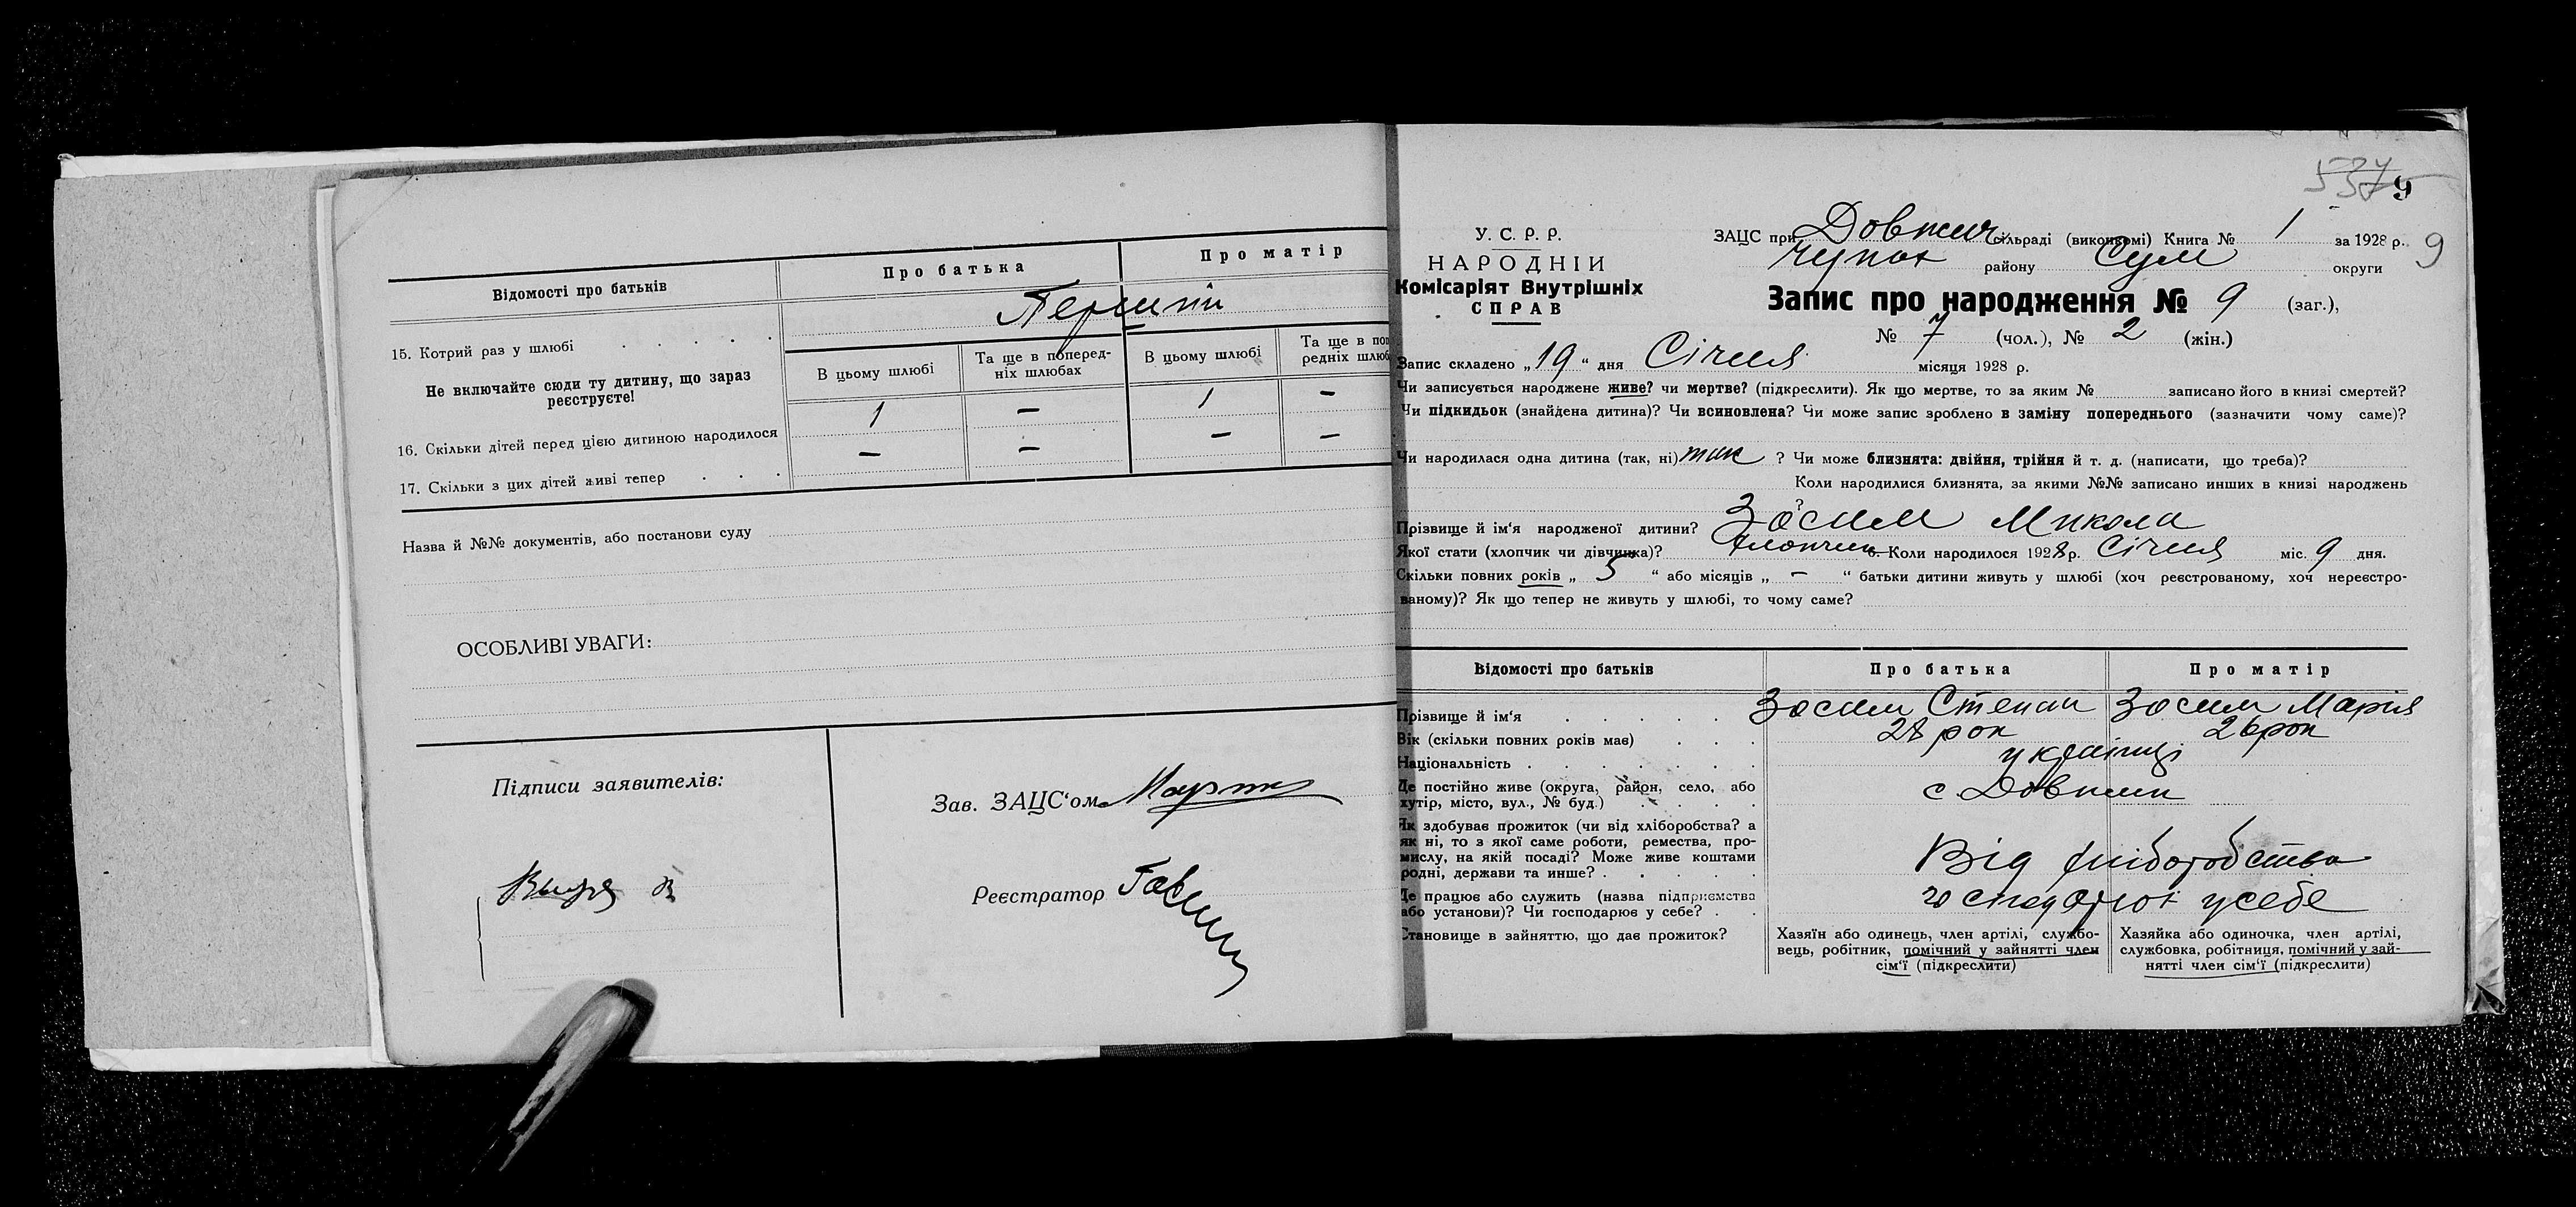 Відомості про батьків
Про батька
Про матір
15. Котрий раз у шлюбі
Перший
Не включайте сюди ту дитину, що зараз реєструєте!
В цьому шлюбі
Та ще в поперед-
ніх шлюбах
В цьому шлюбі
Та ще в
редніх
16. Скільки дітей перед цією дитиною народилося
1 — 1 —
17. Скільки з цих дітей живі тепер
— — — —
Назва й №№ документів, або постанови суду
ОСОБЛИВІ УВАГИ:
Підписи заявителів:
Зав. ЗАЦС‘ом
Реєстратор
537 9
У. С. Р. Р.
НАРОДНІЙ
Комісаріят Внутрішніх
СПРАВ
ЗАЦС при Довжич сільраді (виконкомі) Книга № 1 за 1928 р. 9
району Сум округи
Запис про народження № 9 (заг.),
№ 7 (чол.), № 2 (жін.)
Запис складено „19“ дня Січня місяця 1928 р.
Чи записується народжене живе? чи мертве? (підкреслити). Як що мертве, то за яким № записано його в книзі смертей?
Чи підкидьок (знайдена дитина)? Чи всиновлена? Чи може запис зроблено в заміну попереднього (зазначити чому саме)?
Чи народилася одна дитина (так, ні) так ? Чи може близнята: двійня, трійня й т. д. (написати, що треба)?
Коли народилися близнята, за якими №№ записано инших в книзі народжень
?
Прізвище й ім‘я народженої дитини? Зосим Микола
Якої стати (хлопчик чи дівчинка)? хлопчик 6. Коли народилося 1928 р. Січня міс. 9 дня.
Скільки повних років „ 5 “ або місяців „ – “ батьки дитини живуть у шлюбі (хоч реєстрованому, хоч нереєстро-
ваному)? Як що тепер не живуть у шлюбі, то чому саме?
Відомості про батьків
Про батька
Про матір
Прізвище й ім‘я
Зосим Степан
Зосим Марія
Вік (скільки повних років має)
28 рок
26 рок
Національність
українці
Де постійно живе (округа, район, село, або
хутір, місто, вул., № буд.)
с Довжик
Як здобуває прожиток (чи від хліборобства? а
як ні, то з якої саме роботи, ремества, про-
мислу, на якій посаді? Може живе коштами
родні, держави та инше?
Від хліборобства
Де працює або служить (назва підприємства
або установи)? Чи господарює у себе?
господарює у себе
Становище в зайняттю, що дає прожиток?
Хазяїн або одинець, член артілі, службо-
вець, робітник, помічний у зайнятті член
сім‘ї (підкреслити)
Хазяйка або одиночка, член артілі,
службовка, робітниця, помічний у зай-
нятті член сім‘ї (підкреслити)